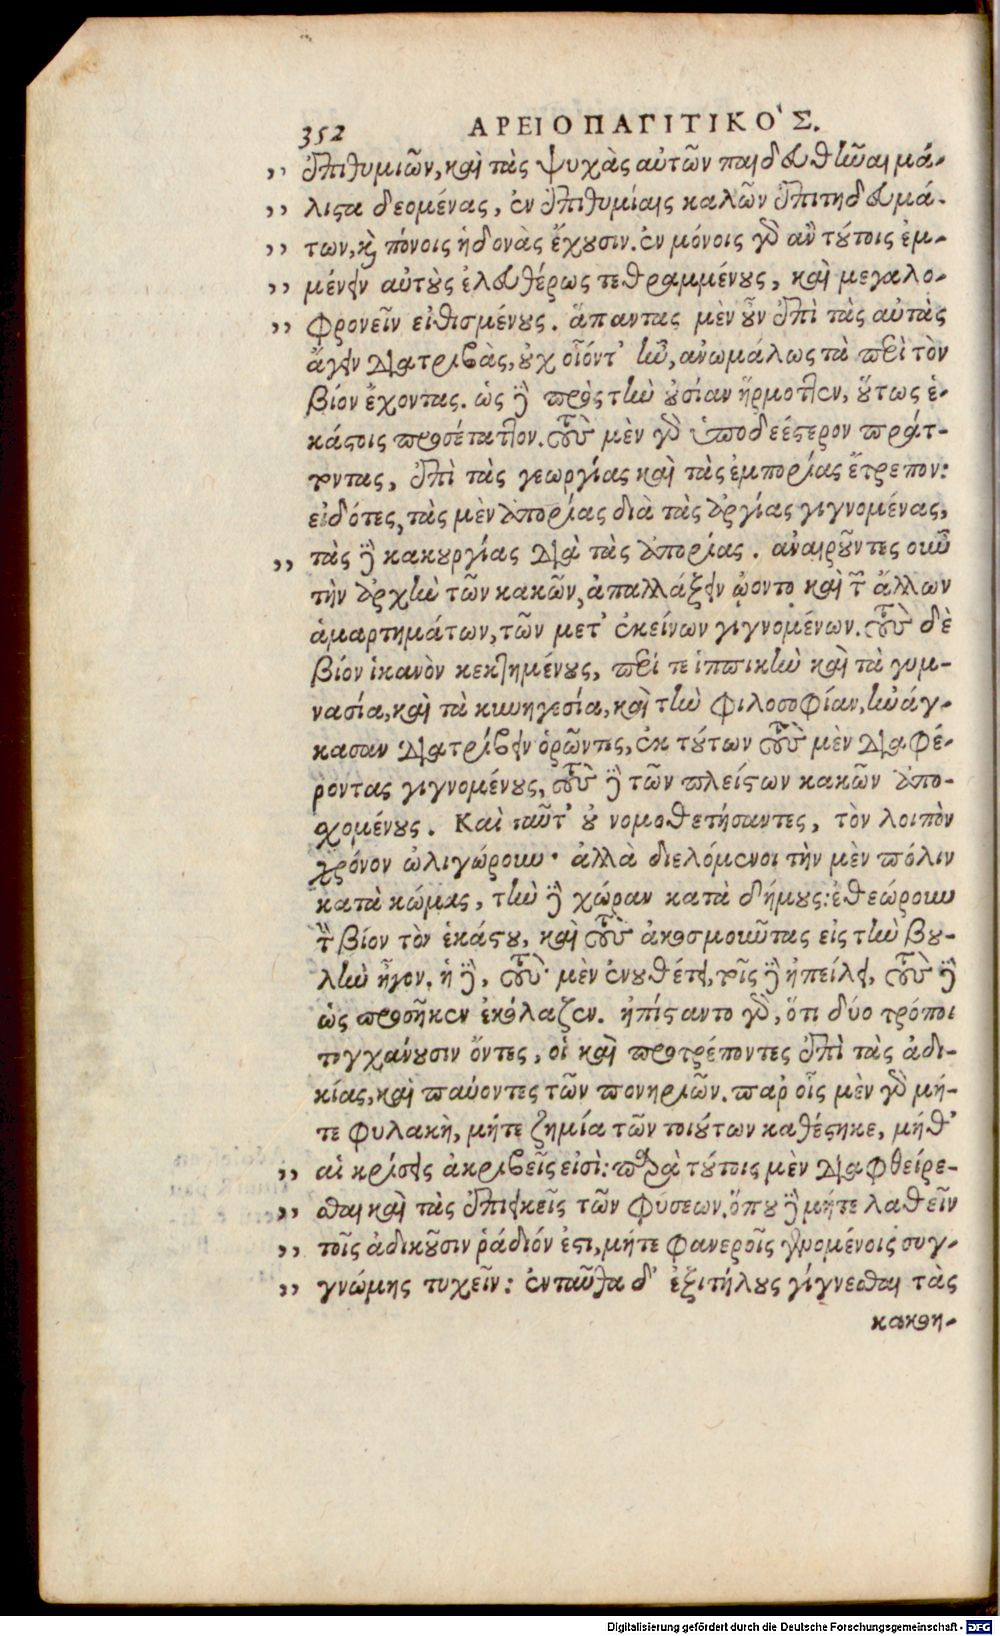 352 ΑΡΕΙΟΠΑΓΙΤΙΚΟΣ.
,, ἐπιθυμιῶν, καὶ τὰς ψυχὰς αὐτῶν παιδευθῆναι μά-
,, λιστα δεομένας, ἐν ἐπιθυμίαις καλῶν ἐπιτηδευμά-
,, των, καὶ πόνοις ἡδονὰς ἔχουσιν. ἐν μόνοις γὰρ ἂν τούτοις ἐμ-
,, μένειν αὐτοὺς ἐλευθέρως τεθραμμένους, καὶ μεγαλο-
,, φρονεῖν εἰθισμένους. ἅπαντας μὲν οὖν ἐπὶ τὰς αὐτὰς
ἄγειν διατριβὰς, οὐχ οἷόντ' ἦν, ἀνωμάλως τὰ περὶ τὸν
βίον ἔχοντας. ὡς δὲ πρὸς τὴν οὐσίαν ἥρμοττεν, οὕτως ἑ-
κάστοις προσέταττον. τοὺς μὲν γὰρ ὑποδεέστερον πράτ-
τοντας, ἐπὶ τὰς γεωργίας καὶ τὰς ἐμπορίας ἔτρεπον:
εἰδότες, τὰς μὲν ἀπορίας διὰ τὰς ἀργίας γιγνομένας,
,, τὰς δὲ κακουργίας διὰ τὰς ἀπορίας. ἀναιροῦντες οὖν
τὴν ἀρχὴν τῶν κακῶν, ἀπαλλάξειν ᾤοντο καὶ τῶν ἄλλων
ἁμαρτημάτων, τῶν μετ' ἐκείνων γιγνομένων. τοὺς δὲ
βίον ἱκανὸν κεκτημένους, περί τε ἱππικὴν καὶ τὰ γυμ-
νασία, καὶ τὰ κυνηγεσία, καὶ τὴν φιλοσοφίαν, ἠνάγ-
κασαν διατρίβειν ὁρῶντες, ἐκ τούτων τοὺς μὲν διαφέ-
ροντας γιγνομένους, τοὺς δὲ τῶν πλείστων κακῶν ἀπο-
χομένους. Καὶ ταῦτ' οὐ νομοθετήσαντες, τὸν λοιπὸν
χρόνον ὠλιγώρουν· ἀλλὰ διελόμενοι τὴν μὲν πόλιν
κατὰ κώμας, τὴν δὲ χώραν κατὰ δήμους: ἐθεώρουν
τὸν βίον τὸν ἑκάστου, καὶ τοὺς ἀκοσμοῦντας εἰς τὴν βου-
λὴν ἦγον. ἡ δὲ, τοὺς μὲν ἐνουθέτει, τοῖς δὲ ἠπείλει, τοὺς δὲ
ὡς προσῆκεν ἐκόλαζεν. ἠπίσταντο γὰρ, ὅτι δύο τρόποι
τυγχάνουσιν ὄντες, οἱ καὶ προτρέποντες ἐπὶ τὰς ἀδι-
κίας, καὶ παύοντες τῶν πονηριῶν. παρ οἷς μὲν γὰρ μή-
τε φυλακὴ, μήτε ζημία τῶν τοιούτων καθέστηκε, μήθ'
,, αἱ κρίσεις ἀκριβεῖς εἰσὶ: παρὰ τούτοις μὲν διαφθείρε-
,, σθαι καὶ τὰς ἐπιεικεῖς τῶν φύσεων. ὅπου δὲ μήτε λαθεῖν
,, τοῖς ἀδικοῦσιν ῥάδιόν ἐστι, μήτε φανεροῖς γενομένοις συγ-
,, γνώμης τυχεῖν: ἐνταῦθα δ' ἐξιτήλους γίγνεσθαι τὰς
κακοη-
Digitalisierung gefördert durch die Deutsche Forschungsgemeinschaft - DFG